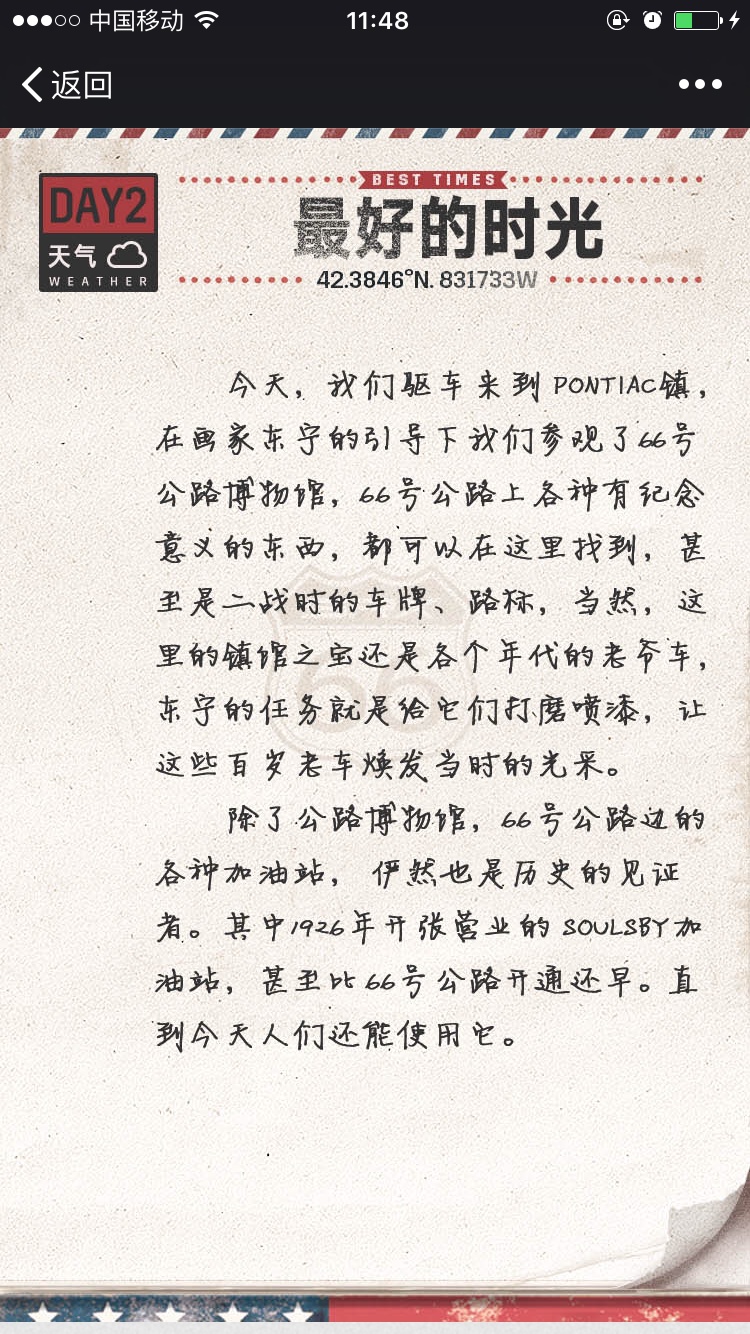 中国移动 11:48
返回
BEST TIMES
DAY2
最好的时光
天气
WEATHER
42.3846°N. 831733W
今天，我们驱车来到PONTIAC镇，
在画家东宁的引导下我们参观了66号
公路博物馆，66号公路上各种有纪念
意义的东西，都可以在这里找到，甚
至是二战时的车牌、路标，当然，这
里的镇馆之宝还是各个年代的老爷车，
东宁的任务就是给它们打磨喷漆，让
这些百岁老车焕发当时的光采。
除了公路博物馆，66号公路边的
各种加油站，俨然也是历史的见证
者。其中1926年开张营业的SOULSBY加
油站，甚至比66号公路开通还早。直
到今天人们还能使用它。
66